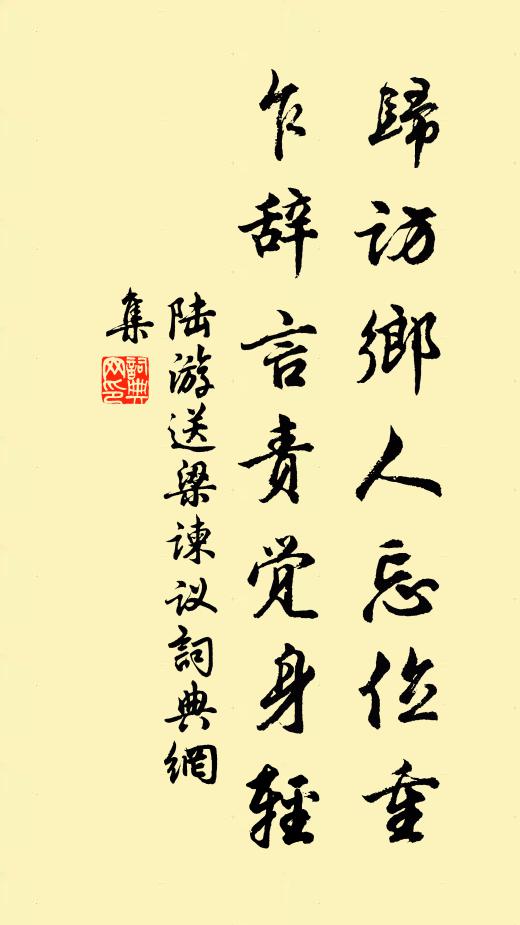 歸访鄉人忘位重
乍辞言责觉身輕
陆游送梁谏议詞典網
集
詞典网印